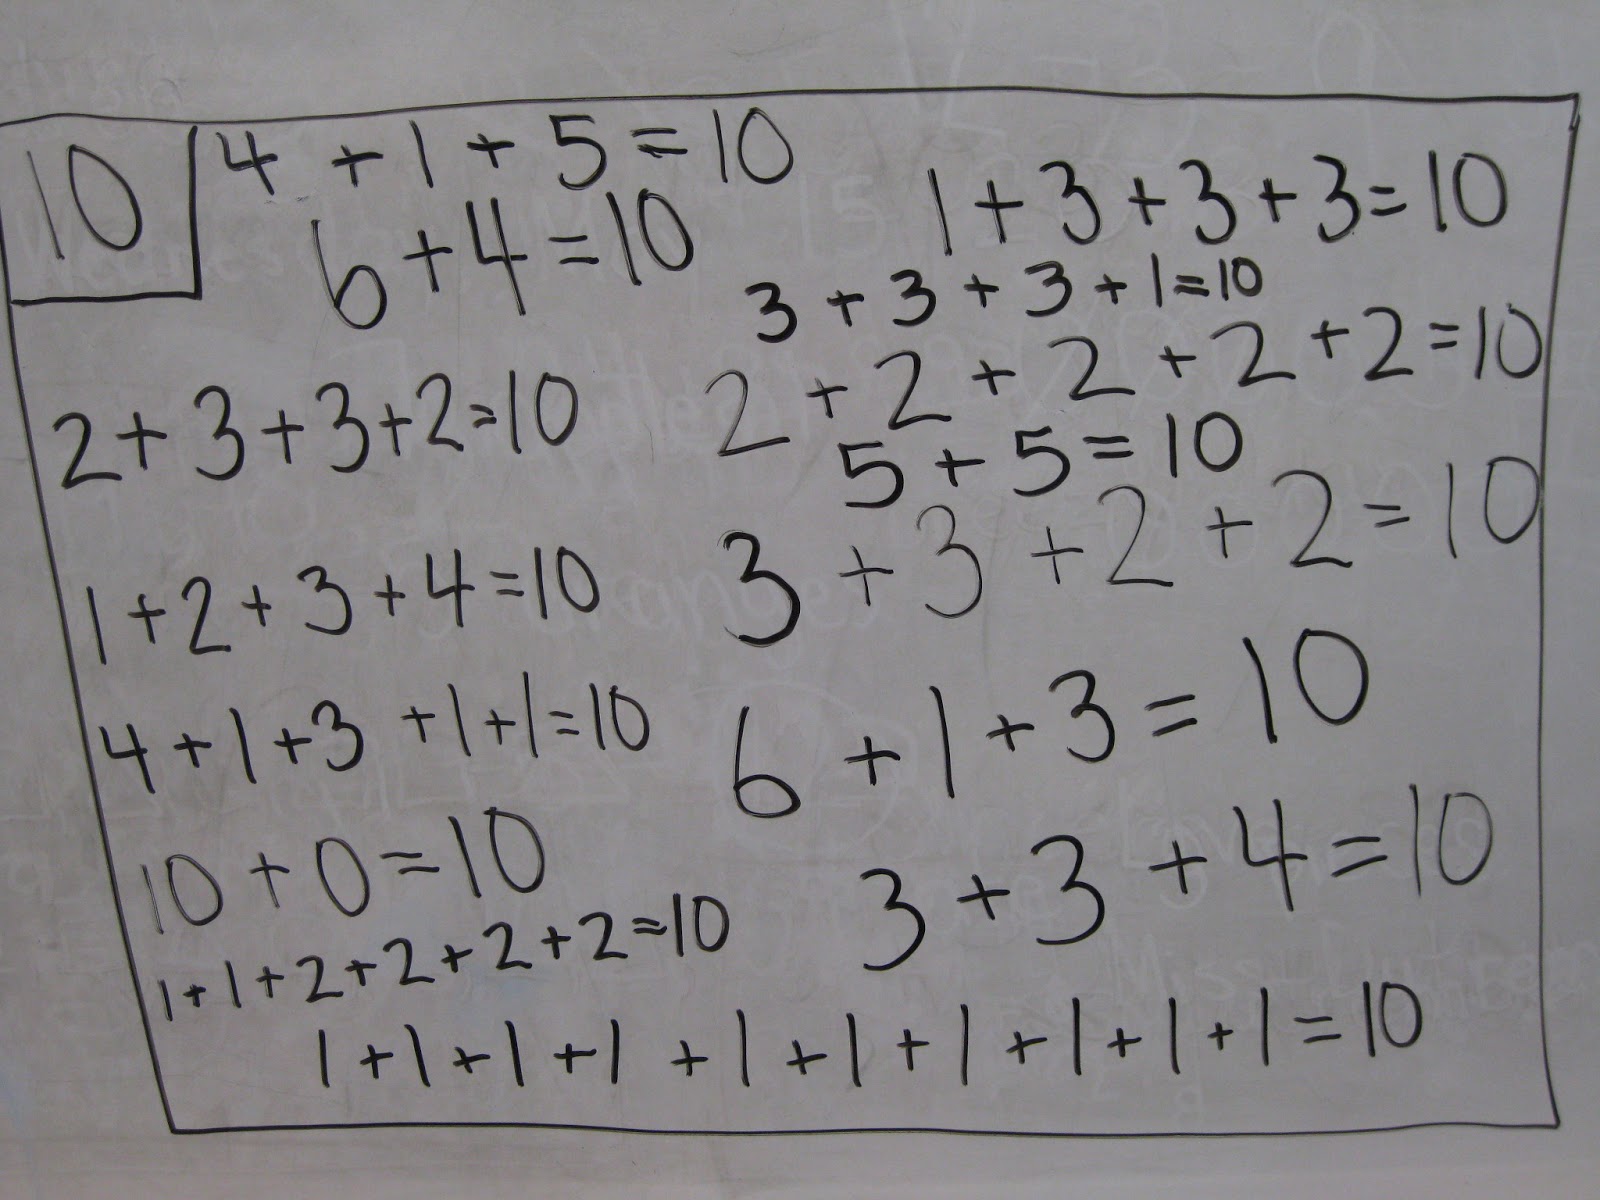 10
4 + 1 + 5 = 10
6 + 4 = 10
2 + 3 + 3 + 2 = 10
1 + 2 + 3 + 4 = 10
4 + 1 + 3 + 1 + 1 = 10
10 + 0 = 10
1 + 1 + 2 + 2 + 2 + 2 = 10
1 + 3 + 3 + 3 = 10
3 + 3 + 3 + 1 = 10
2 + 2 + 2 + 2 + 2 = 10
5 + 5 = 10
3 + 3 + 2 + 2 = 10
6 + 1 + 3 = 10
3 + 3 + 4 = 10
1 + 1 + 1 + 1 + 1 + 1 + 1 + 1 + 1 + 1 = 10